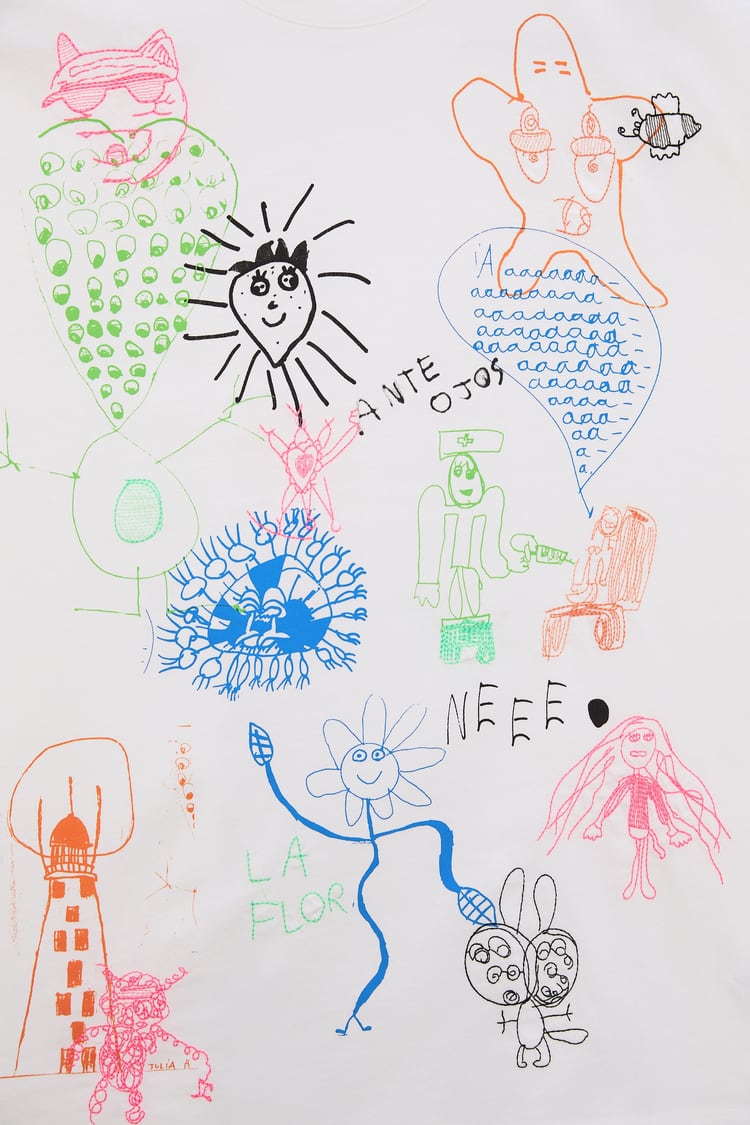 ¡A aaaaaaa-
aaaaaaaa-
aaaaaaaa-
aaaaaaaa-
aaaaaaaaa-
aaaaaaa-
aaaaaaa-
aaaa-
aaa-
aa-
a-
a.
ANTE
OJOS
NEEE
LA
FLOR
JULIA A